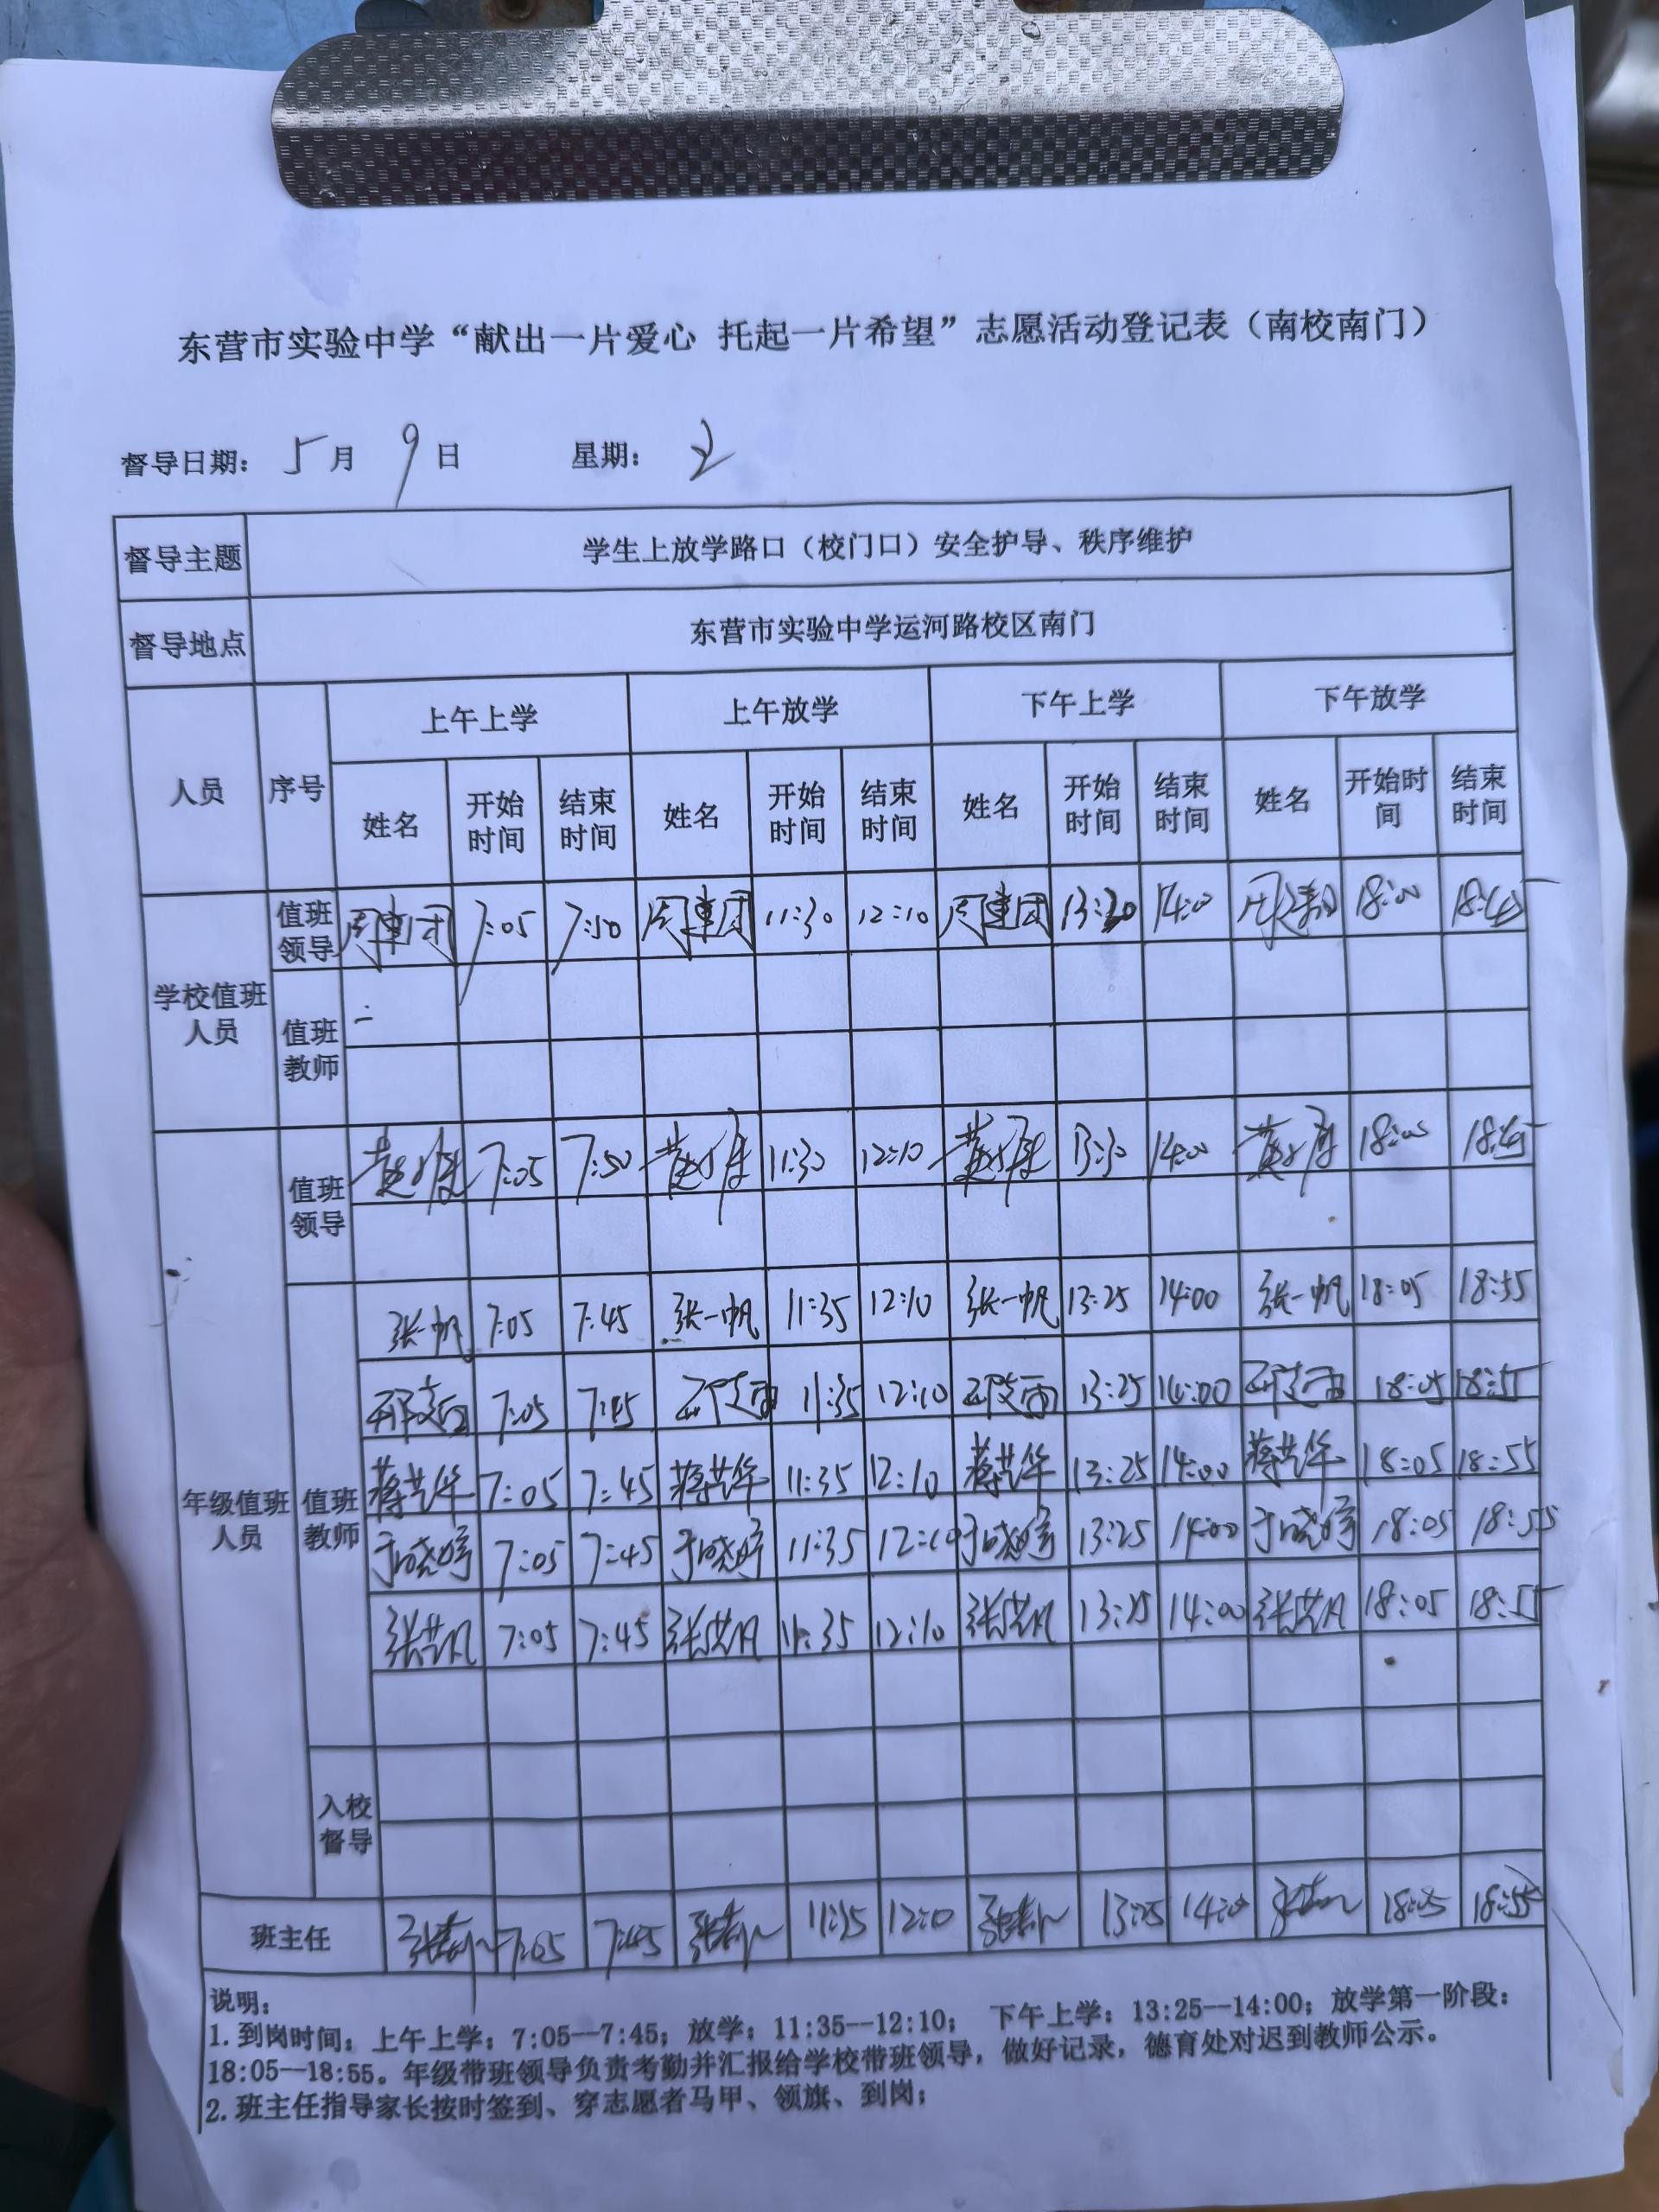 东营市实验中学“献出一片爱心 托起一片希望”志愿活动登记表（南校南门）
督导日期： 5月 9日 星期： 2
督导主题 学生上放学路口（校门口）安全护导、秩序维护
督导地点 东营市实验中学运河路校区南门
人员 序号 上午上学 上午放学 下午上学 下午放学
姓名 开始时间 结束时间 姓名 开始时间 结束时间 姓名 开始时间 结束时间 姓名 开始时间 结束时间
学校值班人员
值班领导 7:05 7:50 11:30 12:10 13:30 14:00 18:00 18:45
值班教师
年级值班人员
值班领导 7:05 7:50 11:30 12:10 13:30 14:00 18:00 18:45
值班教师
张一帆 7:05 7:45 张一帆 11:35 12:10 张一帆 13:25 14:00 张一帆 18:05 18:55
7:05 7:45 11:35 12:10 13:25 14:00 18:05 18:55
蒋艺华 7:05 7:45 蒋艺华 11:35 12:10 蒋艺华 13:25 14:00 蒋艺华 18:05 18:55
于晓婷 7:05 7:45 于晓婷 11:35 12:10 于晓婷 13:25 14:00 于晓婷 18:05 18:55
7:05 7:45 11:35 12:10 13:25 14:00 18:05 18:55
入校督导
班主任 7:05 7:45 11:35 12:10 13:25 14:00 18:05 18:55
说明：
1.到岗时间：上午上学：7:05--7:45；放学：11:35--12:10； 下午上学：13:25--14:00；放学第一阶段：
18:05--18:55。年级带班领导负责考勤并汇报给学校带班领导，做好记录，德育处对迟到教师公示。
2.班主任指导家长按时签到、穿志愿者马甲、领旗、到岗；